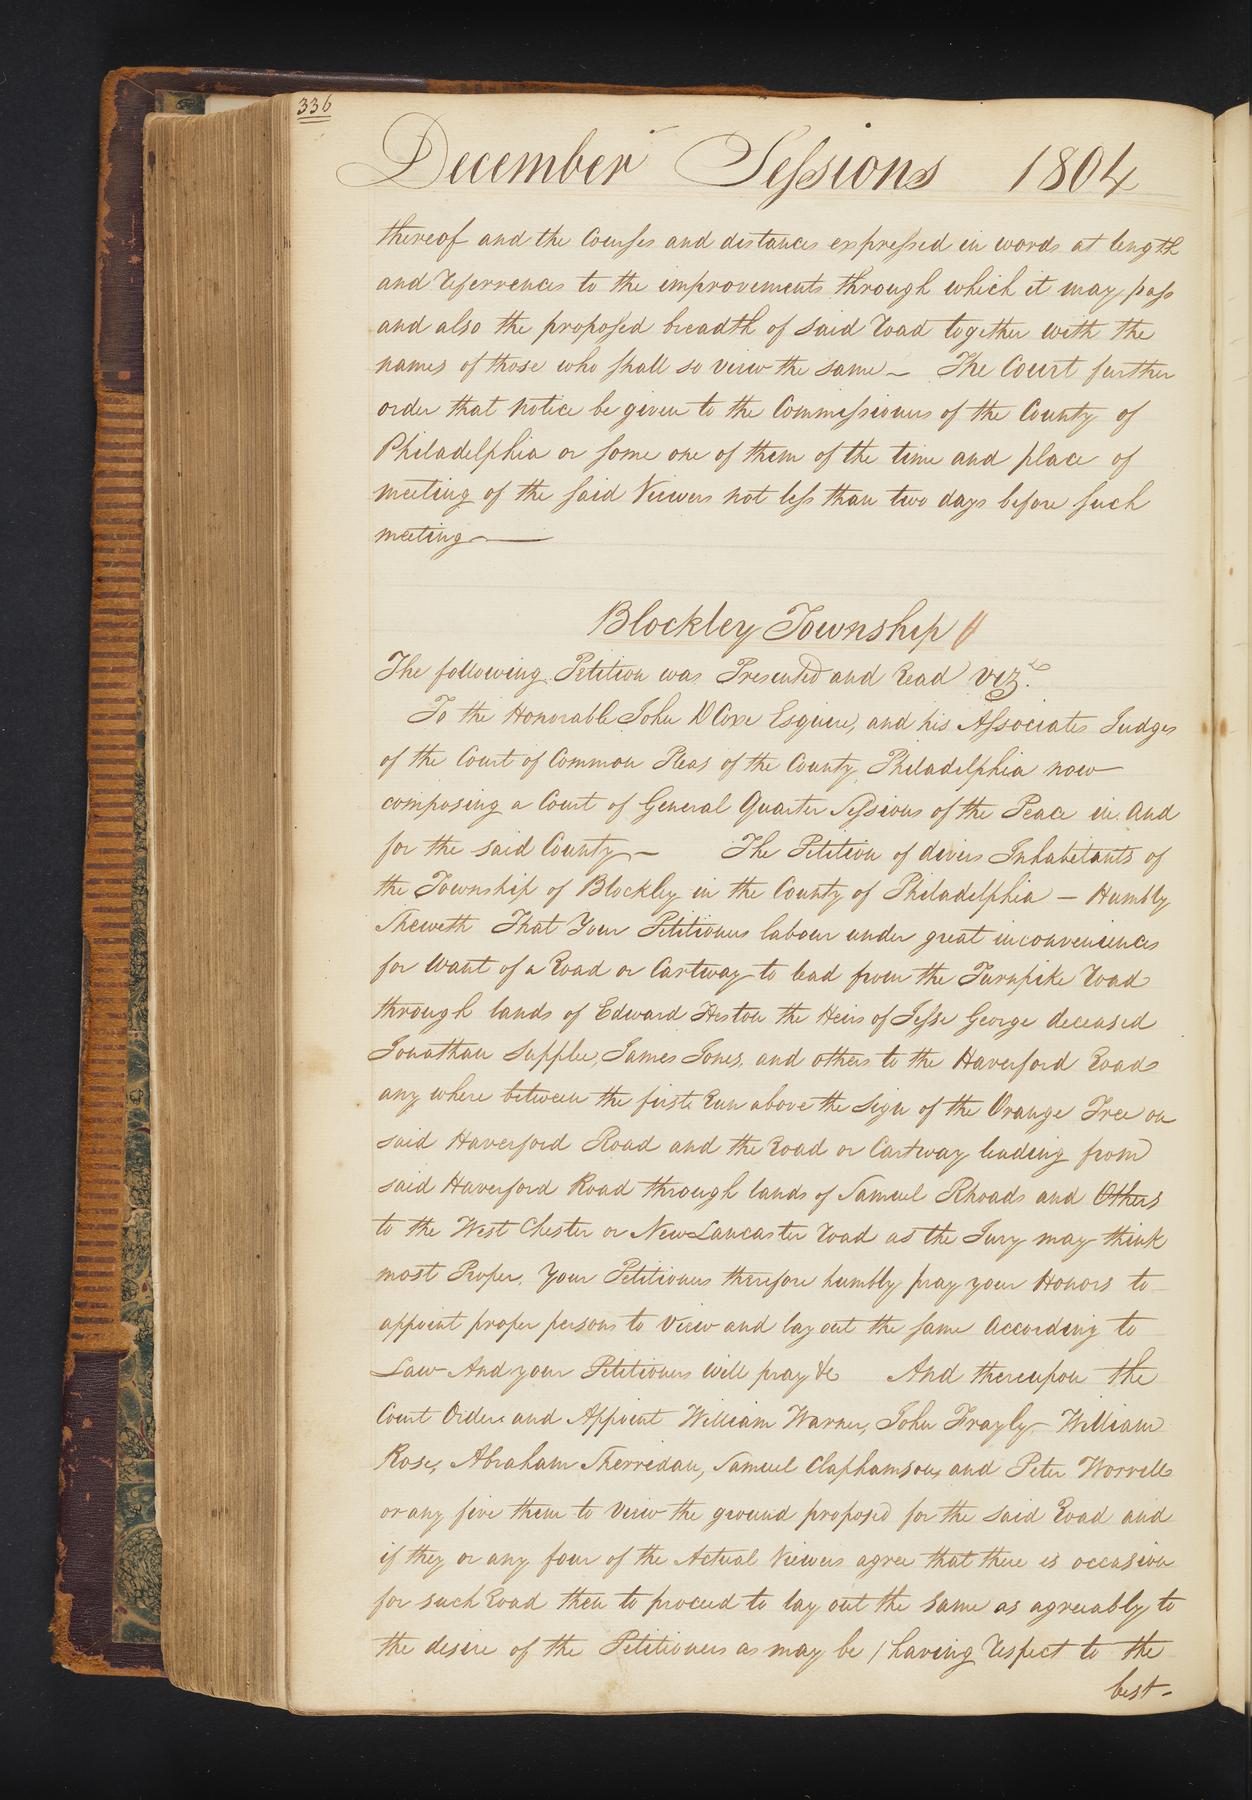 336
December Sessions 1804
thereof and the Courses and distances expressed in words at length
and referrences to the improvements through which it may pass
and also the proposed breadth of said Road together with the
names of those who shall so view the same – The Court further
order that notice be given to the Commissioners of the County of
Philadelphia or some one of them of the time and place of
meeting of the said Viewers not less than two days before such
meeting —
Blockley Township
The following Petition was Presented and Read viz.
To the Honorable John D Coxe Esquire, and his Associates Judges
of the Court of Common Pleas of the County Philadelphia now
composing a Court of General Quarter Sessions of the Peace in and
for the said County – The Petition of divers Inhabitants of
the Township of Blockley in the County of Philadelphia – Humbly
Sheweth That Your Petitioners labour under great inconveniences
for Want of a Road or Cartway to lead from the Turnpike Road
through lands of Edward Heston the Heirs of Jesse George deceased
Jonathan Supplee, James Jones, and others to the Haverford Road
any where between the first Run above the Sign of the Orange Tree on
said Haverford Road and the Road or Cartway leading from
said Haverford Road through lands of Samuel Rhoads and Others
to the West Chester or New Lancaster Road as the Jury may think
most Proper. Your Petitioners therefore humbly pray your Honors to
appoint proper persons to View and lay out the same According to
Law And your Petitioners will pray &c And thereupon the
Court Orders and Appoint William Warner, John Frayly William
Rose, Abraham Sherridan, Samuel Claphamson, and Peter Worrell
or any five them to View the ground proposed for the said Road and
if they or any four of the Actual Viewers agree that there is occasion
for such Road then to proceed to lay out the Same as agreeably to
the desire of the Petitioners as may be / having respect to the
best-